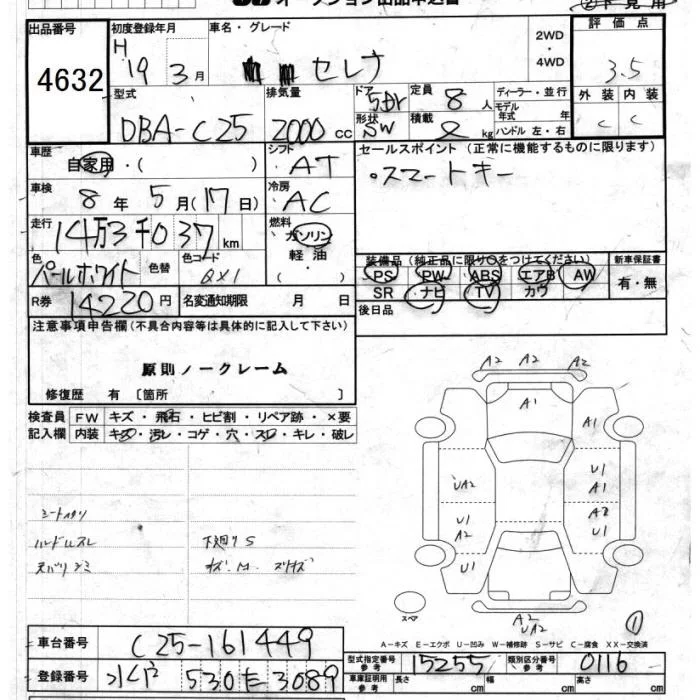 オークション出品申込書
出品番号 初度登録年月 車名・グレード 2WD・4WD 評価点
4632 H 19 3月 セレナ 3.5
型式 排気量 ドア 5dr 定員 8人 ディーラー・並行 外装 内装
DBA-C25 2000cc 形状 SW 積載 kg モデル年式 年 C C
ハンドル 左・右
車歴 自家用・( ) シフト AT セールスポイント (正常に機能するものに限ります)
車検 8年 5月(17日) 冷房 AC ・スマートキー
走行 14万3千037km 燃料 ガソリン
軽油
( )
色 パールホワイト 色替 色コード QX1 装備品 (純正品に限り○をつけてください) 新車保証書
PS PW ABS エアB AW 有・無
R券 14220円 名変通知期限 月 日 SR ナビ TV カワ
後日品
注意事項申告欄(不具合内容等は具体的に記入して下さい)
原則ノークレーム
修復歴 有 〔箇所 〕
検査員 FW キズ・飛石・ヒビ割・リペア跡・×要
記入欄 内装 キズ・汚レ・コゲ・穴・スレ・キレ・破レ
A2 A2 A2
A1
A1
U1
UA2 A1
A2
U1 U1
A2
U1
シートスリ
ハンドルスレ
下廻りS
A2
UA2
スペア
①
A-キズ E-エクボ U-凹み W-補修跡 S-サビ C-腐食 XX-交換済
車台番号 C25-161449
型式指定番号 参考 15255 類別区分番号 参考 0116
登録番号 530 3089
車庫証明用 参考 長さ cm 幅 cm 高さ cm